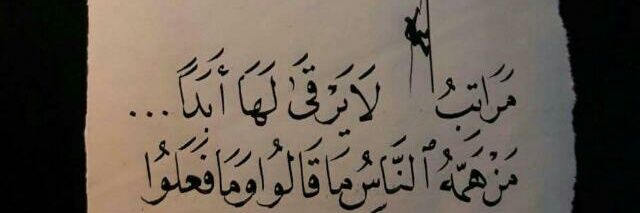 مَرَاتِبُ لَا يَرْقَىٰ لَهَا أَبَدًا...
مَنْ هَمُّهُ ٱلنَّاسُ مَا قَالُوا وَمَا فَعَلُوا